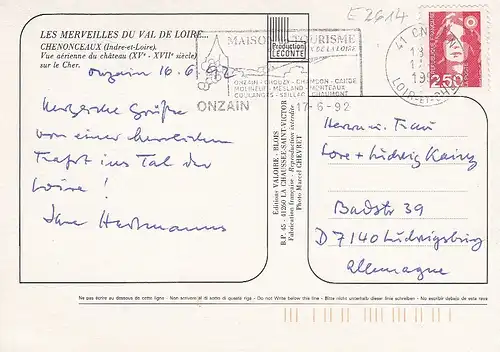 LES MERVEILLES DU VAL DE LOIRE...
CHENONCEAUX (Indre-et-Loire).
Vue aérienne du château (XVᵉ - XVIIᵉ siècle)
sur le Cher.
Onzain 16.6.92
Herzliche Grüße
von einer herrlichen
Fahrt ins Tal der
Loire!
Ihre
E2614
MAISON TOURISME
DE LA LOIRE
ONZAIN - CHOUZY - CHAMBON - CANDE
MOLINEUF - MESLAND - MONTEAUX
COULANGES - SEILLAC - CHAUMONT
ONZAIN
17-6-92
Production
LECONTE
41
LOIR-ET-CHER
2,50
Editions VALOIRE - BLOIS
B.P. 45 - 41260 LA CHAUSSEE-SAINT-VICTOR
Fabrication française - Reproduction interdite
Photo Marcel CHEYRET
Herrn u. Frau
Lore + Ludwig
Badstr 39
D 7140 Ludwigsburg
Allemagne
Ne pas écrire au dessous de cette ligne - Non scrivere al di sotto di questa riga - Do not Write below this line - Bitte nicht unterhalb dieser linie schreiben - No escribir debajo de esta linea